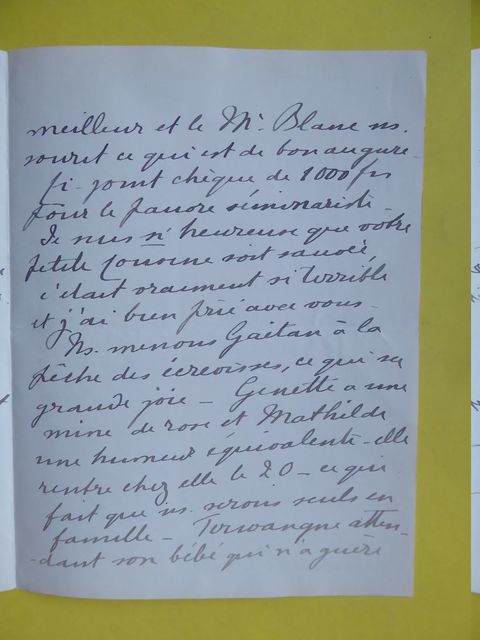 meilleur et le Mt Blanc ns.
sourit ce qui est de bon augure.
Ci-joint chèque de 1000 frs
pour le pauvre séminariste.
Je suis si heureuse que votre
petite cousine soit sauvée,
c'était vraiment si terrible
et j'ai bien prié avec vous.
Ns. menons Gaëtan à la
pêche des écrevisses, ce qui sa
grande joie — Ginette a une
mine de rose et Mathilde
une humeur équivalente. elle
rentre chez elle le 20 — ce qui
fait que ns. serons seuls en
famille — Terwangne atten-
-dant son bébé qui n'a guère